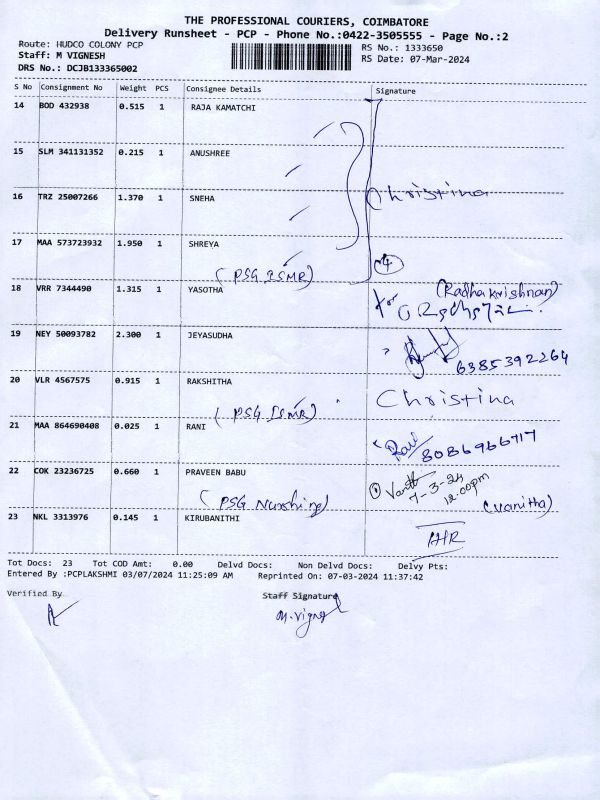 THE PROFESSIONAL COURIERS, COIMBATORE
Delivery Runsheet - PCP - Phone No.:0422-3505555 - Page No.:2
Route: HUDCO COLONY PCP
RS No.: 1333650
Staff: M VIGNESH
RS Date: 07-Mar-2024
DRS No.: DCJB133365002
S No Consignment No Weight PCS Consignee Details Signature
14 BOD 432938 0.515 1 RAJA KAMATCHI
15 SLM 341131352 0.215 1 ANUSHREE
16 TRZ 25007266 1.370 1 SNEHA Christina
17 MAA 573723932 1.950 1 SHREYA
(PSG ISMR) 4
18 VRR 7344490 1.315 1 YASOTHA (Radhakrishnan)
for
19 NEY 50093782 2.300 1 JEYASUDHA
6385392264
20 VLR 4567575 0.915 1 RAKSHITHA Christina
(PSG ISMR)
21 MAA 864690408 0.025 1 RANI Ravi
8086966717
22 COK 23236725 0.660 1 PRAVEEN BABU
7-3-24
12.00pm
(PSG Nurshing) (Vanitha)
23 NKL 3313976 0.145 1 KIRUBANITHI
AHR
Tot Docs: 23 Tot COD Amt: 0.00 Delvd Docs: Non Delvd Docs: Delvy Pts:
Entered By :PCPLAKSHMI 03/07/2024 11:25:09 AM Reprinted On: 07-03-2024 11:37:42
Verified By Staff Signature
M. Vignesh